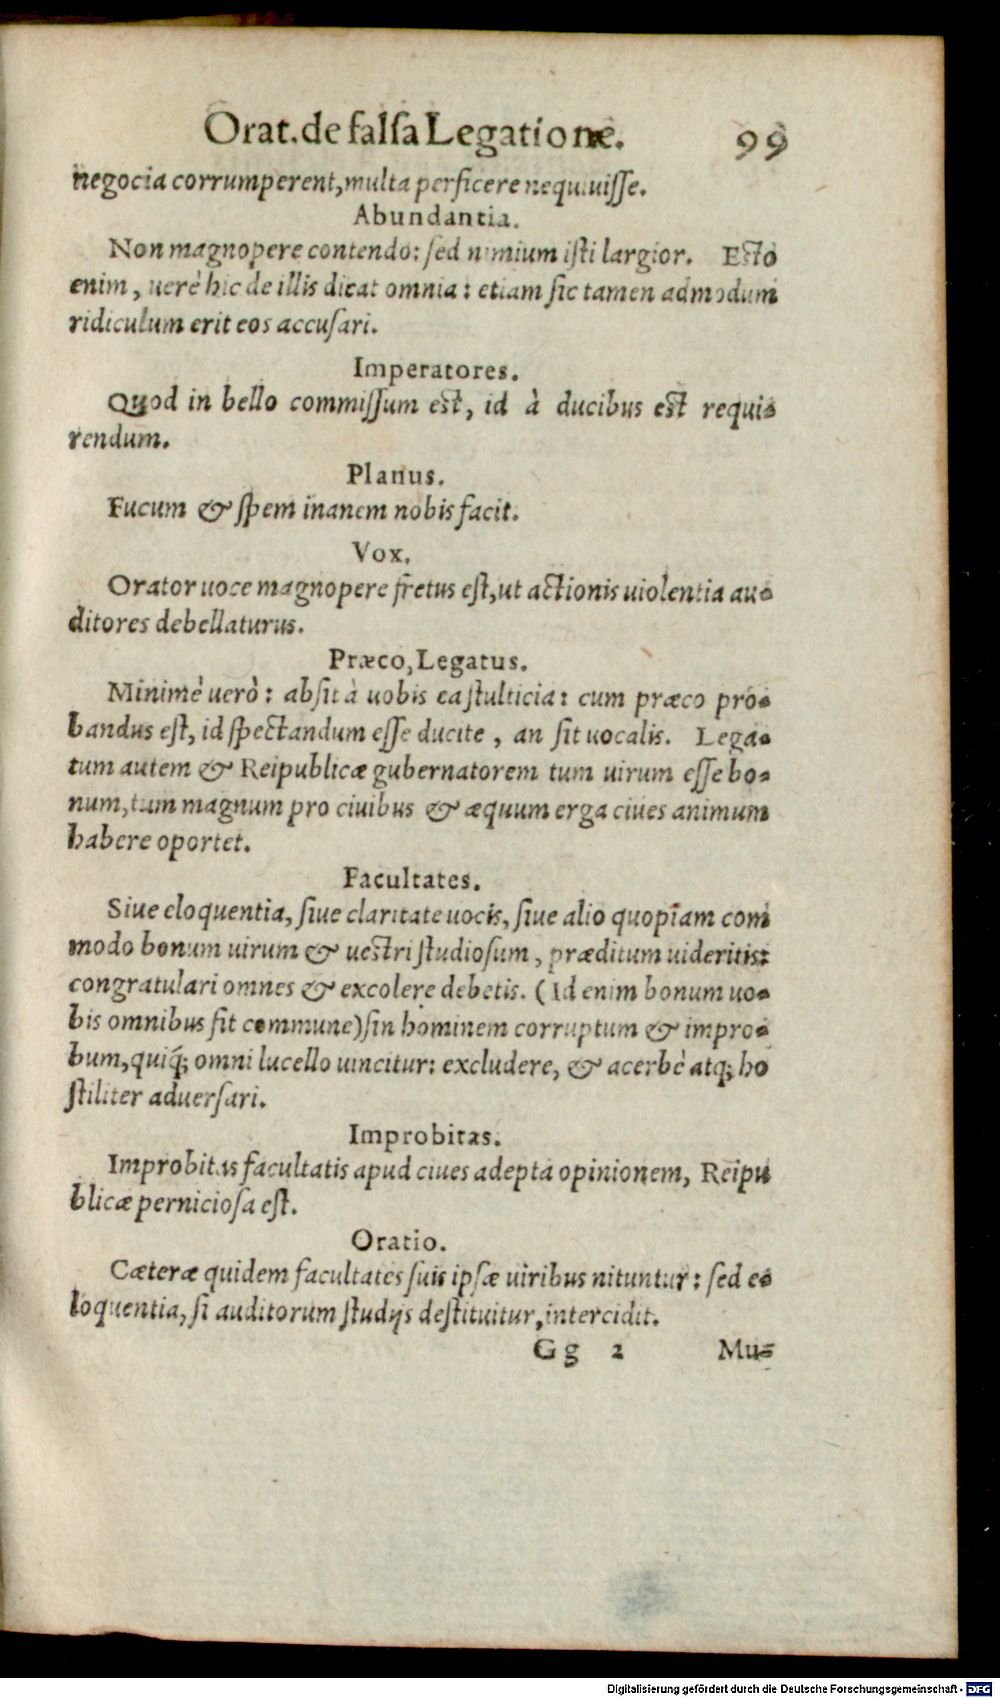 Orat. de falsa Legatione. 99
negocia corrumperent, multa perficere nequiuisse.
Abundantia.
Non magnopere contendo: sed nimium isti largior. Esto
enim, uerè hic de illis dicat omnia: etiam sic tamen admodum
ridiculum erit eos accusari.
Imperatores.
Quod in bello commissum est, id à ducibus est requi-
rendum.
Planus.
Fucum & spem inanem nobis facit.
Vox.
Orator uoce magnopere fretus est, ut actionis uiolentia au-
ditores debellaturus.
Præco, Legatus.
Minimè uerò: absit à uobis ea stulticia: cum præco pro-
bandus est, id spectandum esse ducite, an sit uocalis. Lega-
tum autem & Reipublicæ gubernatorem tum uirum esse bo-
num, tum magnum pro ciuibus & æquum erga ciues animum
habere oportet.
Facultates.
Siue eloquentia, siue claritate uocis, siue alio quopiam com
modo bonum uirum & uestri studiosum, præditum uideritis:
congratulari omnes & excolere debetis. (Id enim bonum uo-
bis omnibus sit commune) sin hominem corruptum & impro-
bum, quiq; omni lucello uincitur: excludere, & acerbè atq; ho
stiliter aduersari.
Improbitas.
Improbitas facultatis apud ciues adepta opinionem, Reipu
blicæ perniciosa est.
Oratio.
Cæteræ quidem facultates suis ipsæ uiribus nituntur: sed e-
loquentia, si auditorum studijs destituitur, intercidit.
Gg 2 Mu-
Digitalisierung gefördert durch die Deutsche Forschungsgemeinschaft - DFG